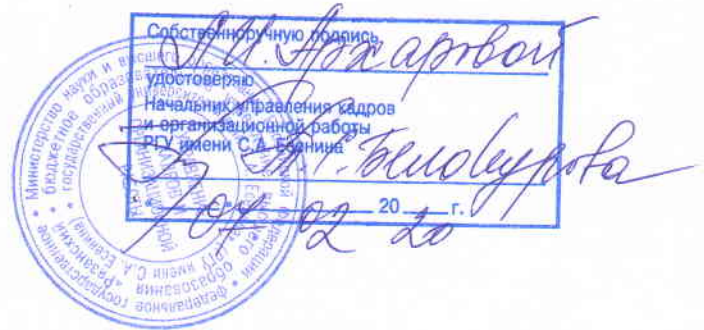 Собственноручную подпись
Л.И. Архаровой
удостоверяю
Начальник управления кадров
и организационной работы
РГУ имени С.А. Есенина
Белокурова
20 г.
07 02 20
Министерство науки и высшего образования Российской Федерации
федеральное государственное бюджетное образовательное учреждение высшего образования
«Рязанский государственный университет имени С.А. Есенина»
(РГУ имени С.А. Есенина)